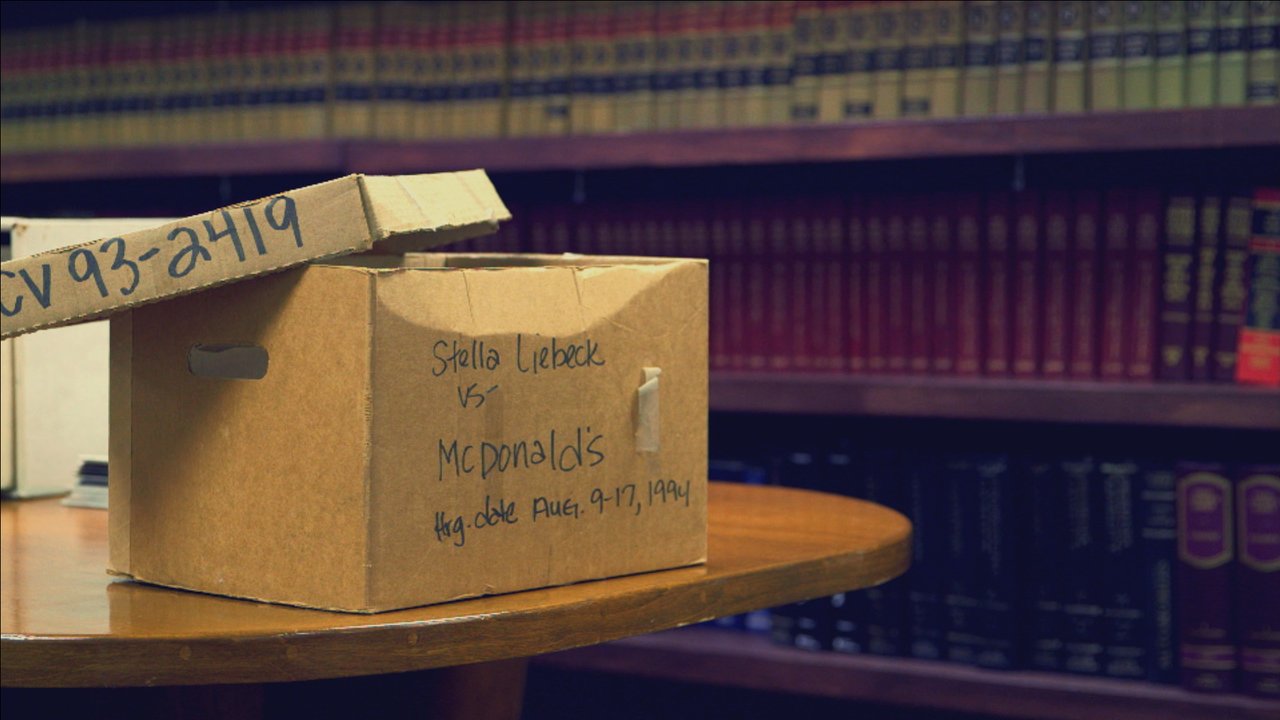 CV 93-2419
Stella Liebeck
vs-
McDonald's
Hrg. date Aug. 9-17, 1994